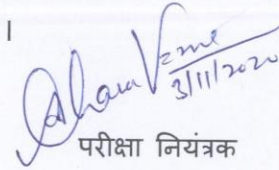 ।
3/11/2020
परीक्षा नियंत्रक